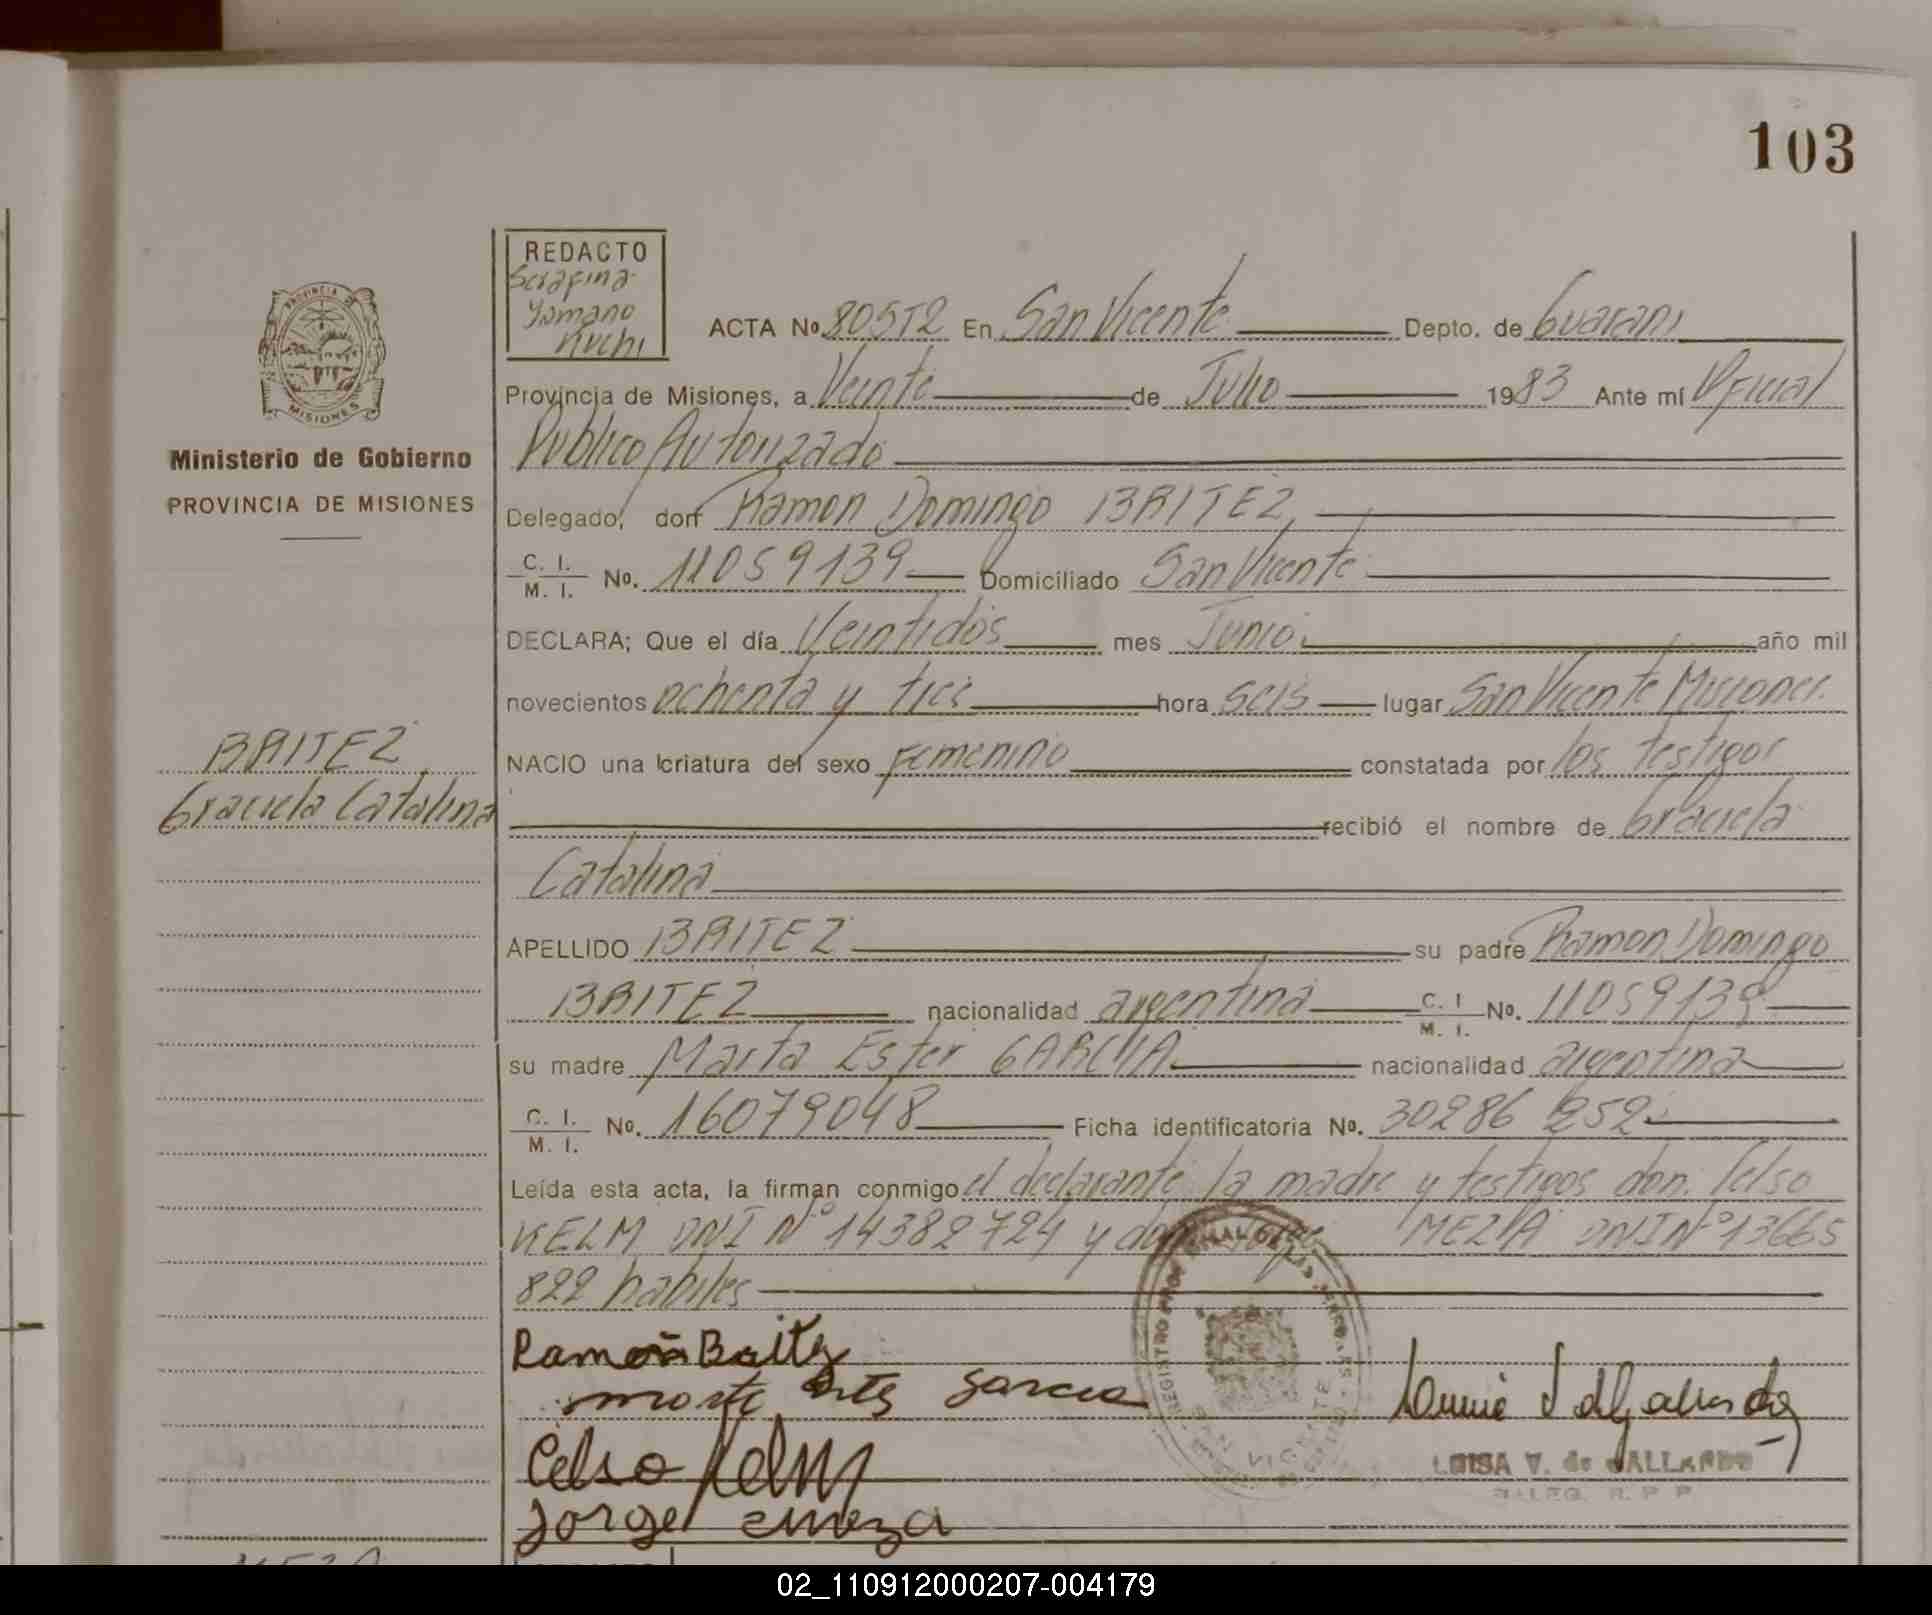 103
REDACTO
Serafina
Yamano
Kuchi
PROVINCIA DE
MISIONES
Ministerio de Gobierno
PROVINCIA DE MISIONES
ACTA No. 80572 En San Vicente Depto. de Guarani
Provincia de Misiones, a Veinte de Julio 1983 Ante mí Oficial
Publico Autorizado
Delegado, don Ramon Domingo BRITEZ
C. I.
M. I. No. 11059139 Domiciliado San Vicente
DECLARA; Que el día Veintidos mes Junio año mil
novecientos ochenta y tres hora seis lugar San Vicente Misiones
NACIO una criatura del sexo femenino constatada por los testigos
recibió el nombre de Graciela
Catalina
BRITEZ
Graciela Catalina
APELLIDO BRITEZ su padre Ramon Domingo
BRITEZ nacionalidad argentina C. I. M. I. No. 11059139
su madre Marta Ester GARCIA nacionalidad argentina
C. I.
M. I. No. 16079048 Ficha identificatoria No. 30286 252
Leída esta acta, la firman conmigo el declarante la madre y testigos don. Celso
KELM DNI Nº 14382724 y don Jorge MEZA DNI Nº 13665
822 habiles
Ramón Baitez
García
Celso Kelm
Jorge meza
SAN VICENTE
LUISA V. de GALLARDO
DELEG. R. P. P.
02_110912000207-004179